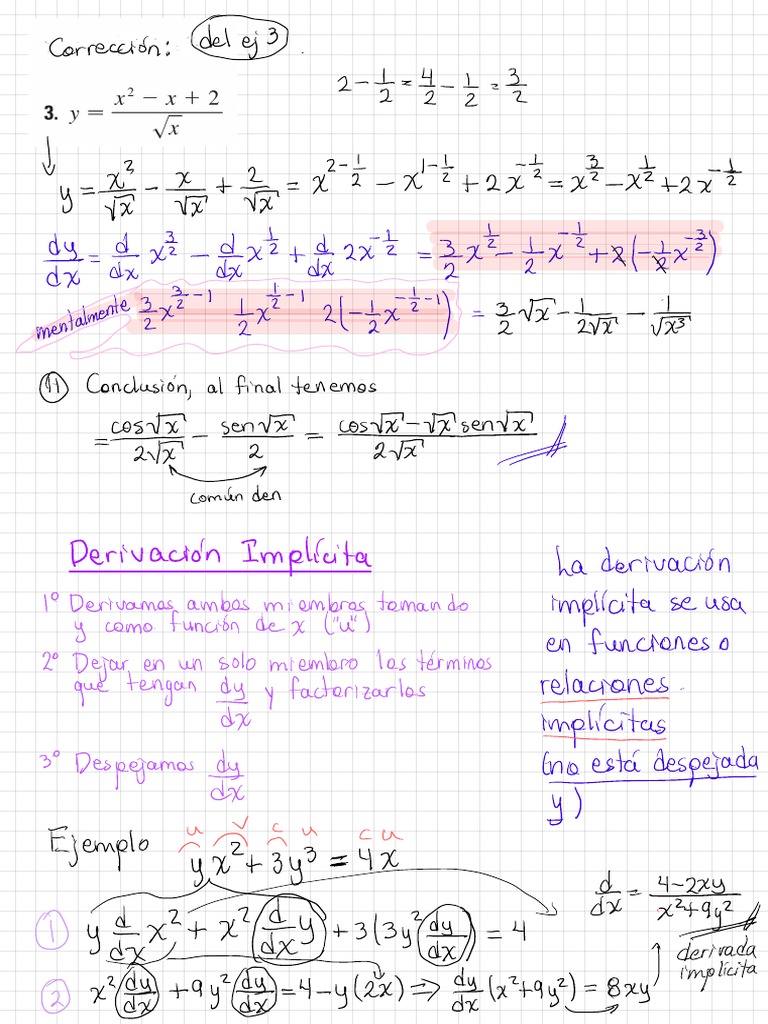 Corrección: del ej 3
2 - 1/2 = 4/2 - 1/2 = 3/2
3. y = (x² - x + 2)/√x
y = x²/√x - x/√x + 2/√x = x^(2-1/2) - x^(1-1/2) + 2x^(-1/2) = x^(3/2) - x^(1/2) + 2x^(-1/2)
dy/dx = d/dx x^(3/2) - d/dx x^(1/2) + d/dx 2x^(-1/2) = 3/2 x^(1/2) - 1/2 x^(-1/2) + 2(-1/2 x^(-3/2))
mentalmente 3/2 x^(3/2 - 1) 1/2 x^(1/2 - 1) 2(-1/2 x^(-1/2 - 1)) = 3/2 √x - 1/(2√x) - 1/√x³
11 Conclusión, al final tenemos
= cos√x/(2√x) - sen√x/2 = (cos√x - √x sen√x)/(2√x)
común den
Derivación Implícita
1° Derivamos ambos miembros tomando
y como función de x ("u")
2° Dejar en un solo miembro los términos
que tengan dy/dx y factorizarlos
3° Despejamos dy/dx
La derivación
implícita se usa
en funciones o
relaciones
implícitas
(no está despejada
y)
Ejemplo
u v c u c u
yx² + 3y³ = 4x
1 y d/dx x² + x² d/dx y + 3(3y² dy/dx) = 4
2 x² dy/dx + 9y² dy/dx = 4 - y(2x) ⇒ dy/dx (x² + 9y²) = 8xy
d/dx = (4 - 2xy)/(x² + 9y²)
derivada
implícita